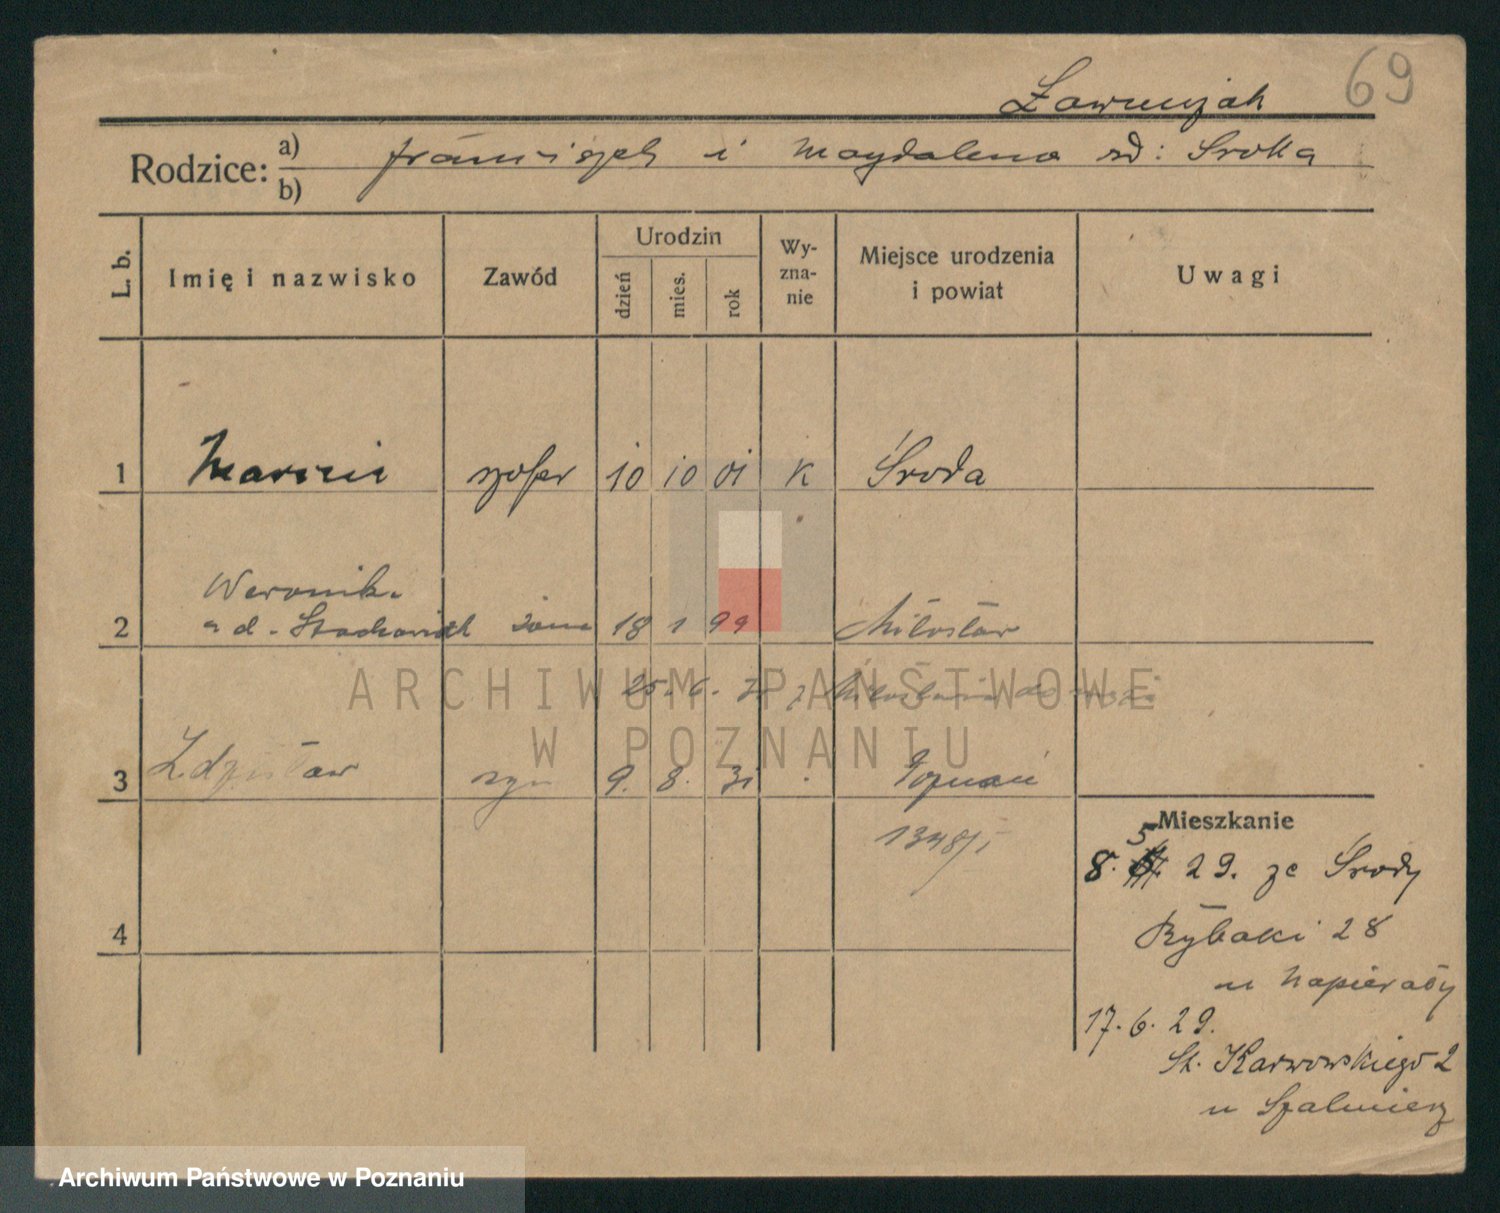 69
Ławniczak
Rodzice: a) Franciszek i Magdalena zd: Sroka
b)
L. b.
Imię i nazwisko
Zawód
Urodzin
dzień
mies.
rok
Wy-
zna-
nie
Miejsce urodzenia
i powiat
Uwagi
1 Marcin szofer 10 10 01 K Środa
2 Weronika
zd. Stachowiak żona 18 1 99 Miłosław
25. 6. 31 z Miłosławia do
3 Zdzisław syn 9. 8. 31 Poznań
1348/I
4
Mieszkanie
5
8. 29. ze Środy
Rybaki 28
u Napierały
17. 6. 29.
St. Karwowskiego 2
u Szalmierz
ARCHIWUM PAŃSTWOWE
W POZNANIU
Archiwum Państwowe w Poznaniu